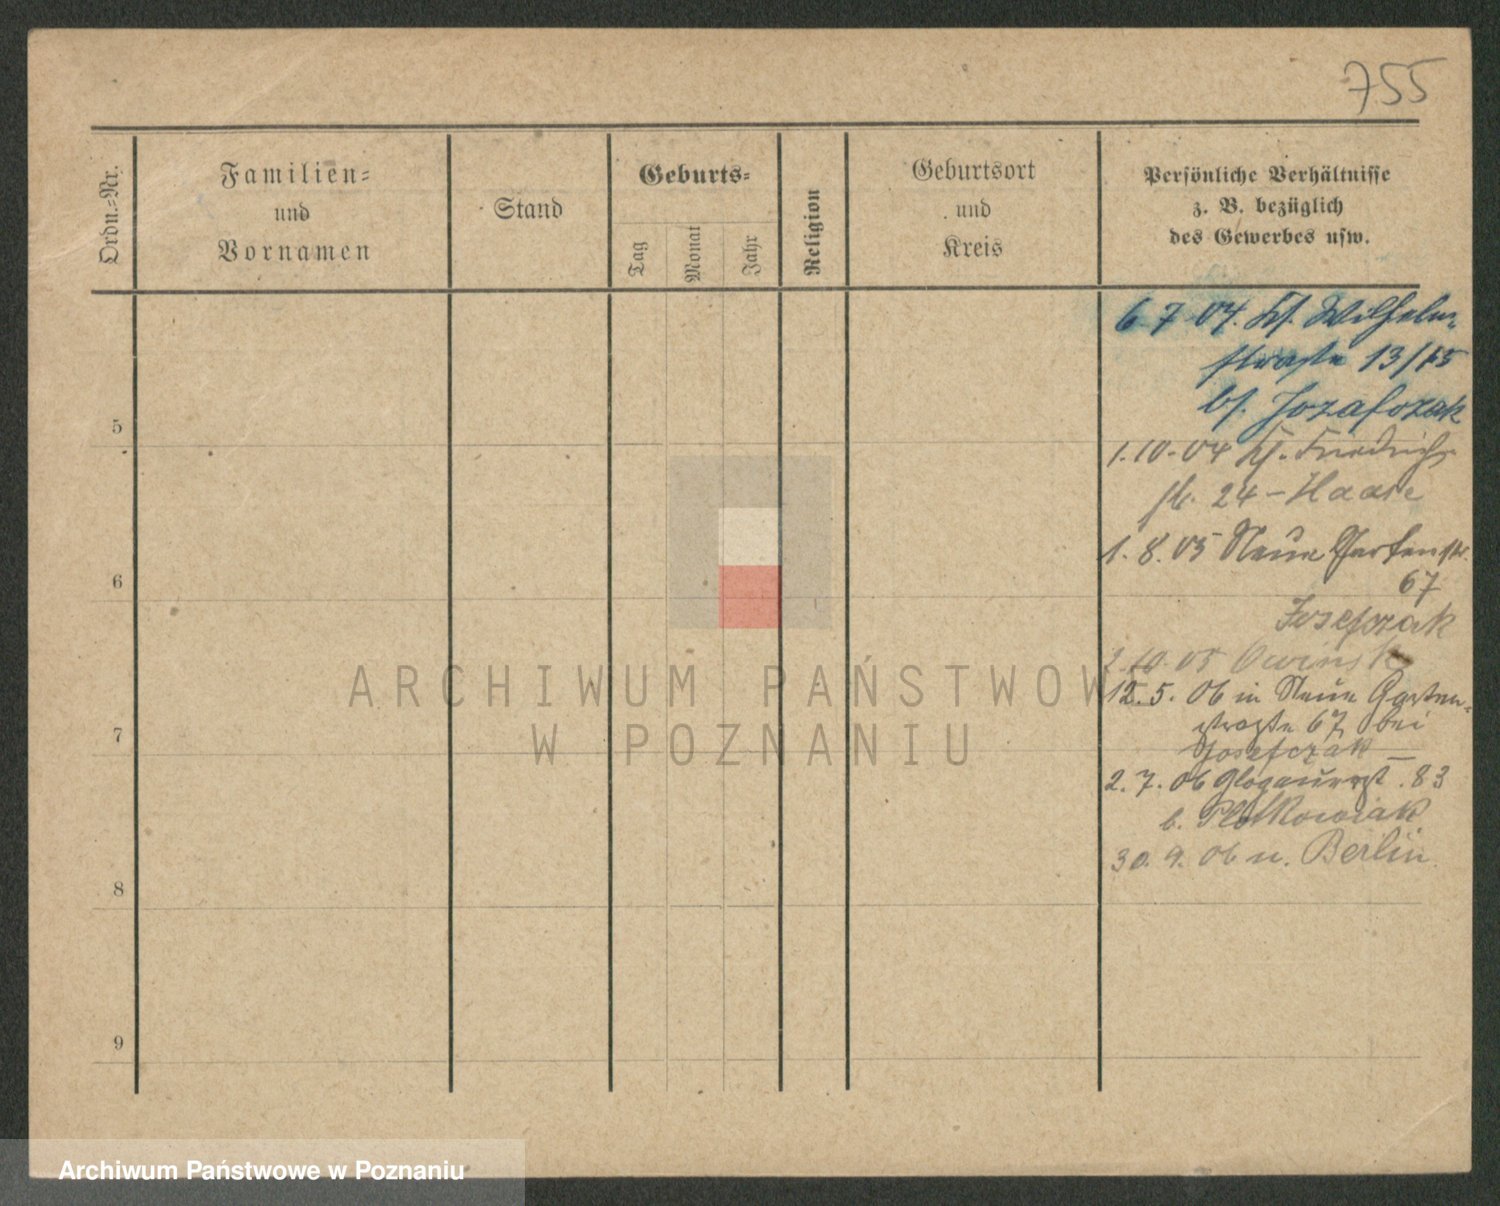 755
Ordn.-Nr.
Familien-
und
Vornamen
Stand
Geburts-
Tag
Monat
Jahr
Religion
Geburtsort
und
Kreis
Persönliche Verhältnisse
z. B. bezüglich
des Gewerbes usw.
6 7 04. Wilhelm-
straße 13/15
bf. Jozafczak
5
1.10.04 Friedrich
str. 24 - Haase
1. 8. 05 Neue Gartenstr.
67
6
Josefczak
2.10.05 Owinsk
12.5. 06 in Neue Garten-
straße 67 bei
7
Josefczak
2. 7. 06 Glogauerst. 83
b. Plotkowiak
30. 9. 06 n. Berlin
8
9
ARCHIWUM PAŃSTWOWE
W POZNANIU
Archiwum Państwowe w Poznaniu